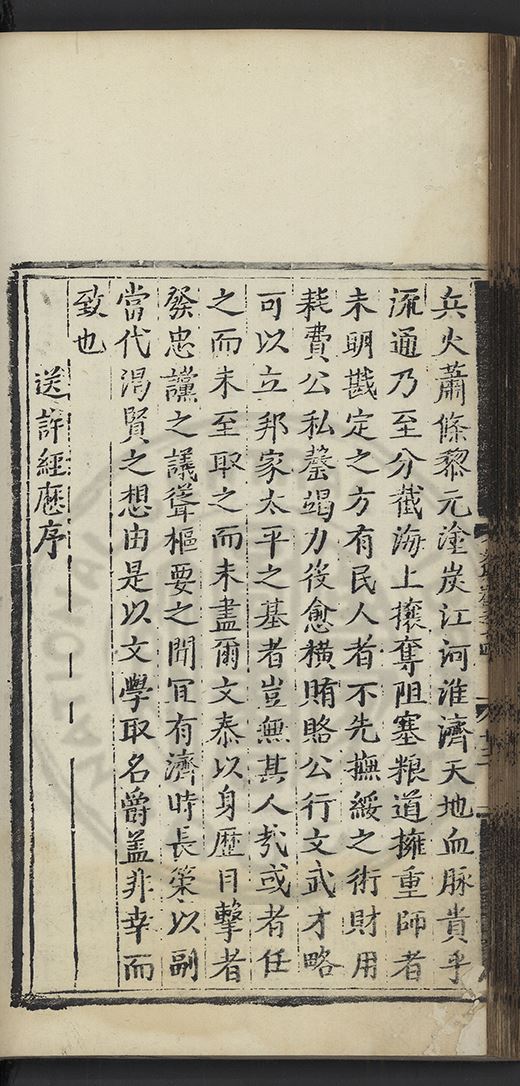 兵火蕭條黎元塗炭江河淮濟天地血脉貴乎
流通乃至分截海上攘奪阻塞粮道擁重師者
未明戡定之方有民人者不先撫綏之術財用
耗費公私罄竭力後愈橫賄賂公行文武才略
可以立邦家太平之基者豈無其人㢤或者任
之而未至取之而未盡爾文泰以身歷目擊者
發忠讜之議聳樞要之聞冝有濟時長策以副
當代渇賢之想由是以文學取名爵盖非幸而
致也
送許經歷序